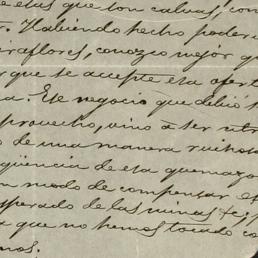 de ellas que son calvas, con
. Habiendo hecho poder
iraflores, conozco mejor qu
que se accepte esta ofert
a. Este negocio que debió s
provecho, vino á ser otr
o de una manera ruinos
güencia de esta quemazo
n modo de compensar e
sperado de las minas &c,
a que no hemos tocado co
mos.